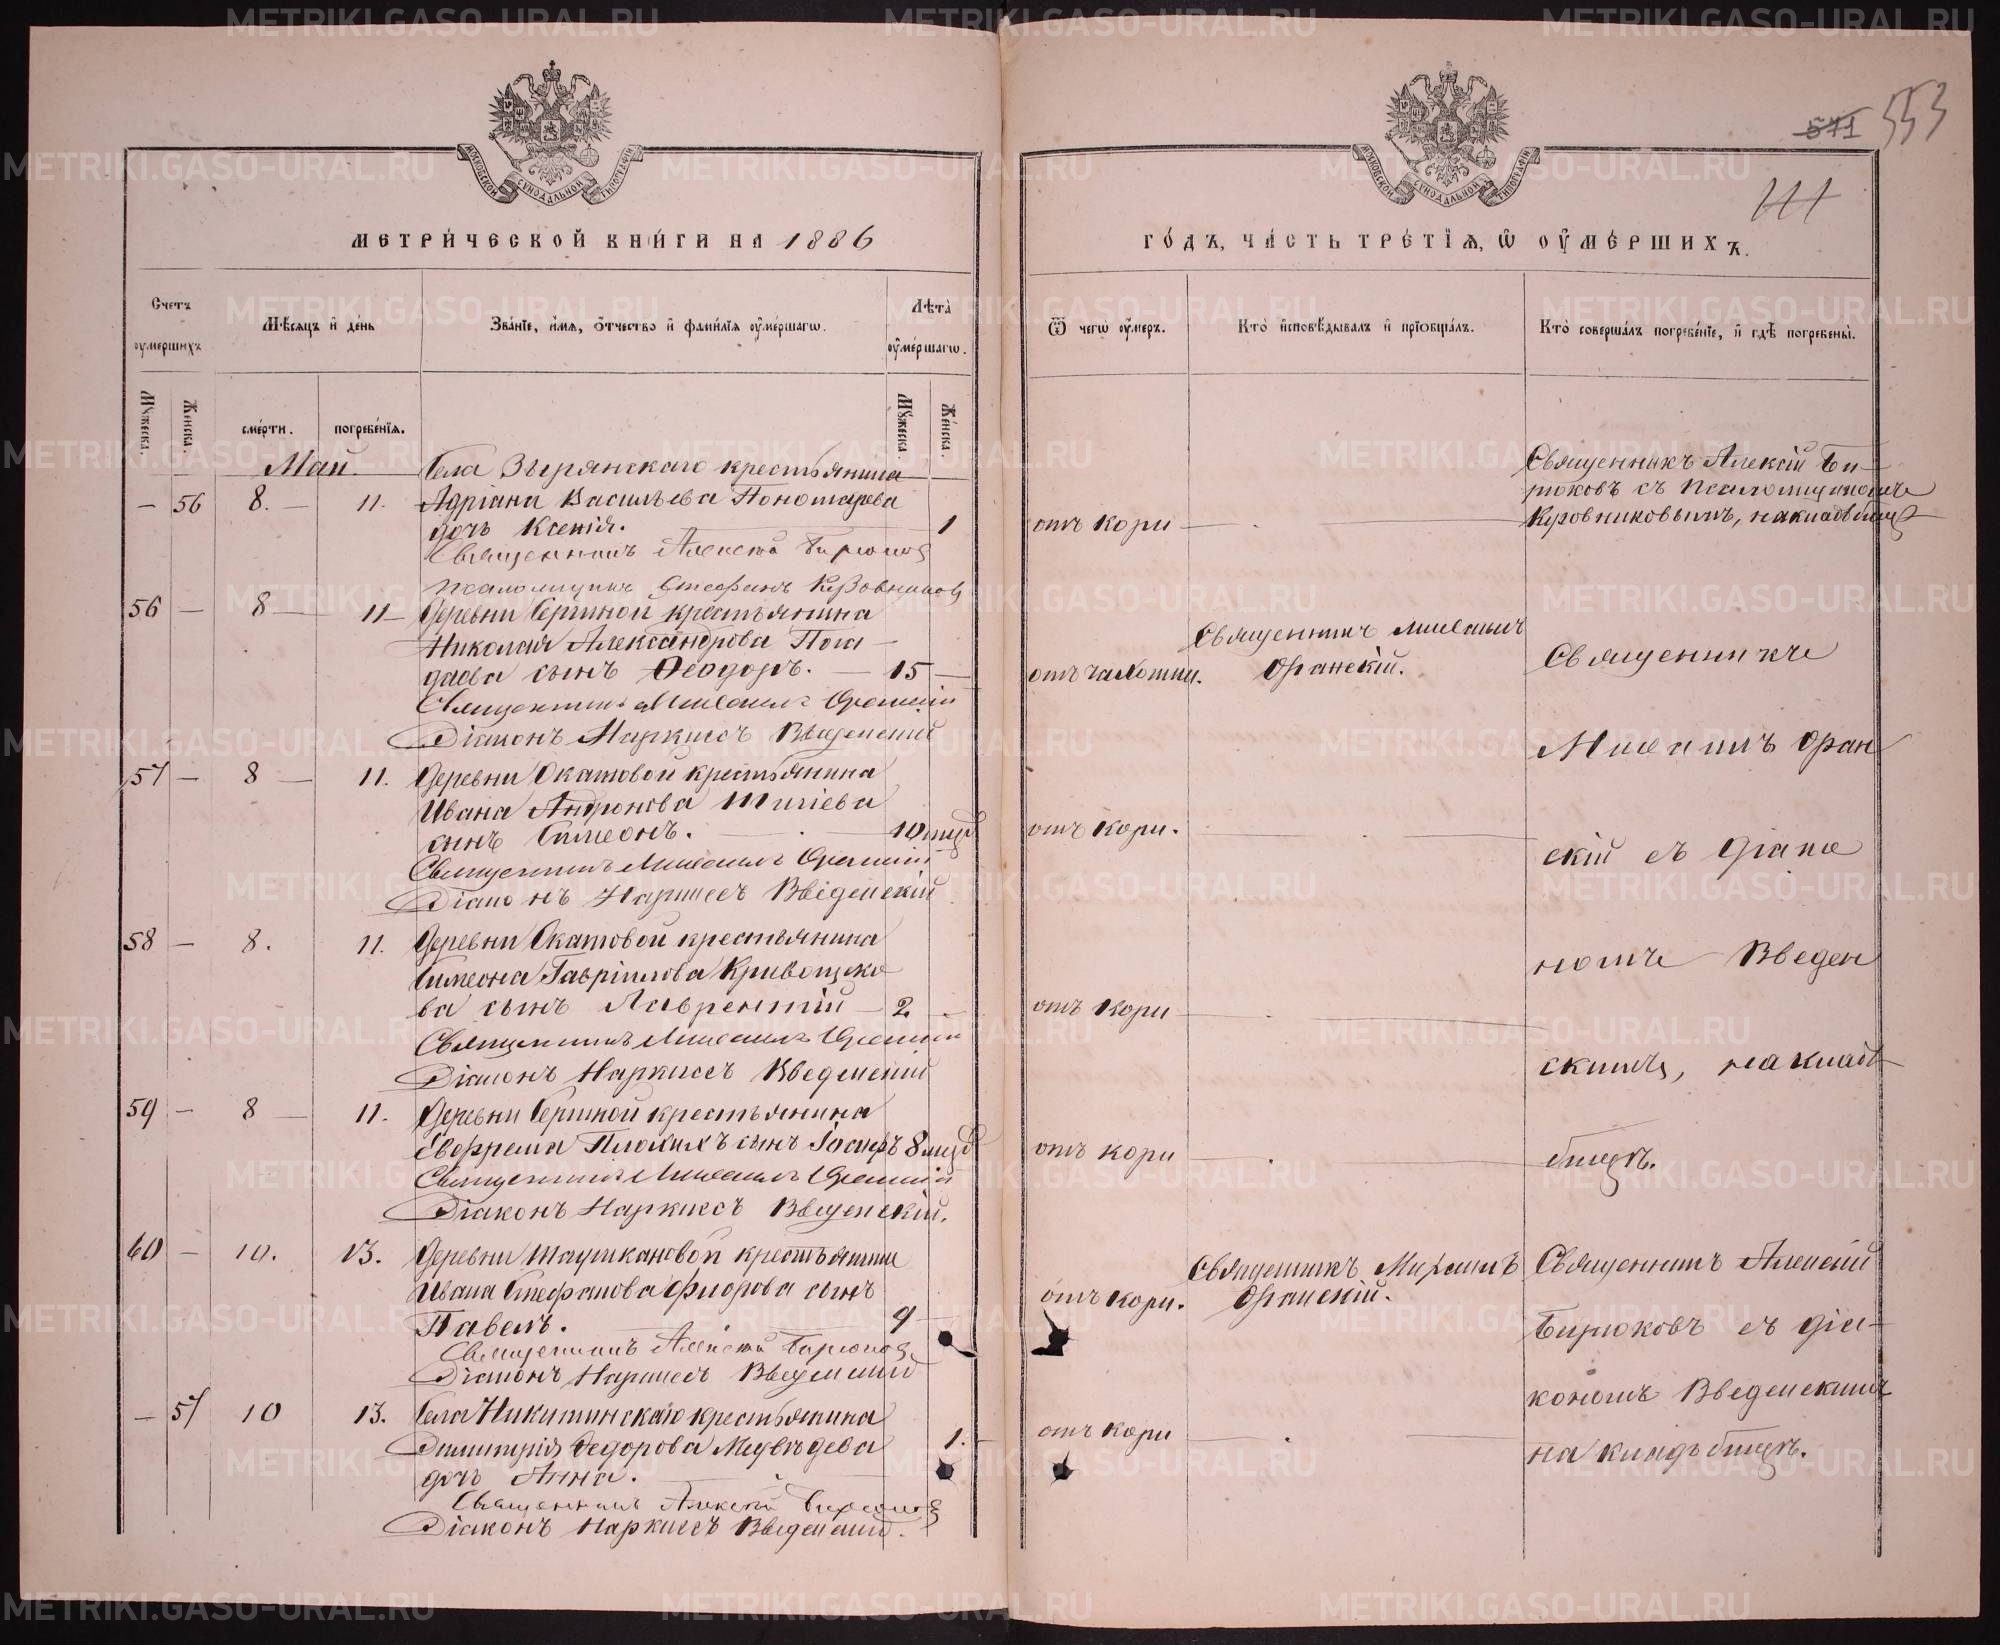 МЕТРИ́ЧЕСКОЙ КНИ́ГИ НА 1886
Счетъ
оу҆мершихъ
Мꙋжеска.
Женска.
Мѣ́сѧцъ и҆ де́нь
сме́рти.
погребе́нїѧ.
Зва́нїе, и҆́мѧ, ѻ҆́тчество и҆ фами́лїѧ оу҆ме́ршагѡ.
Лѣ́та
оу҆ме́ршагѡ.
Мꙋ́жеска.
Же́нска.
Май.
— 56 8. — 11.
Села Зырянскаго крестьянина
Адріана Васильева Пономарева
дочь Ксенія. 1
Священникъ Алексій Бирюковъ
Псаломщикъ Стефанъ Кузовниковъ
56 — 8 — 11 —
Деревни Бериной крестьянина
Николая Александрова Пога-
даева сынъ Ѳеодоръ. — 15 —
Священникъ Михаилъ Оранскій
Діаконъ Наркиссъ Введенскій
57 — 8 — 11.
Деревни Окатовой крестьянина
Ивана Андронова
сынъ Симеонъ. — 10 мцѣ
Священникъ Михаилъ Оранскій
Діаконъ Наркиссъ Введенскій
58 — 8. 11.
Деревни Окатовой крестьянина
Симеона Гавріилова Кривощеко
ва сынъ Лаврентій — 2.
Священникъ Михаилъ Оранскій
Діаконъ Наркиссъ Введенскій
59 — 8 — 11.
Деревни Бериной крестьянина
Евфрема Плохихъ сынъ Іосифъ 8 мцѣ
Священникъ Михаилъ Оранскій
Діаконъ Наркиссъ Введенскій.
60 — 10. 13.
Деревни крестьянина
Ивана Стефанова Флорова сынъ
Павелъ. 9
Священникъ Алексій Бирюковъ
Діаконъ Наркиссъ Введенскій
— 57 10 13.
Села Никитинскаго крестьянина
Димитрія Ѳедорова Медвѣдева 1.
дочь Анна.
Священникъ Алексій Бирюковъ
Діаконъ Наркиссъ Введенскій.
МОСКОВСКОЙ СѴНОДАЛЬНОЙ ТИПОГРАФІИ
571 553
111
ГО́ДЪ, ЧА́СТЬ ТРЕ́ТЇѦ, Ѡ҆ ОУ҆МЕ́РШИХЪ.
Ѿ чегѡ̀ оу҆́меръ.
Кто̀ и҆сповѣ́дывалъ и҆ прїѡбща́лъ.
Кто̀ соверша́лъ погребе́нїе, и҆ гдѣ̀ погребены̀.
отъ кори
Священникъ Алексій Би-
рюковъ съ Псаломщикомъ
Кузовниковымъ, на кладбищѣ
отъ чахотки.
Священникъ Михаилъ
Оранскій.
отъ кори.
отъ кори
отъ кори
Священникъ
Михаилъ Оран
скій съ Діако
номъ Введен
скимъ, на клад
бищѣ.
отъ кори.
Священникъ Михаилъ
Оранскій.
отъ кори
Священникъ Алексій
Бирюковъ съ діа-
кономъ Введенскимъ
на кладбищѣ.